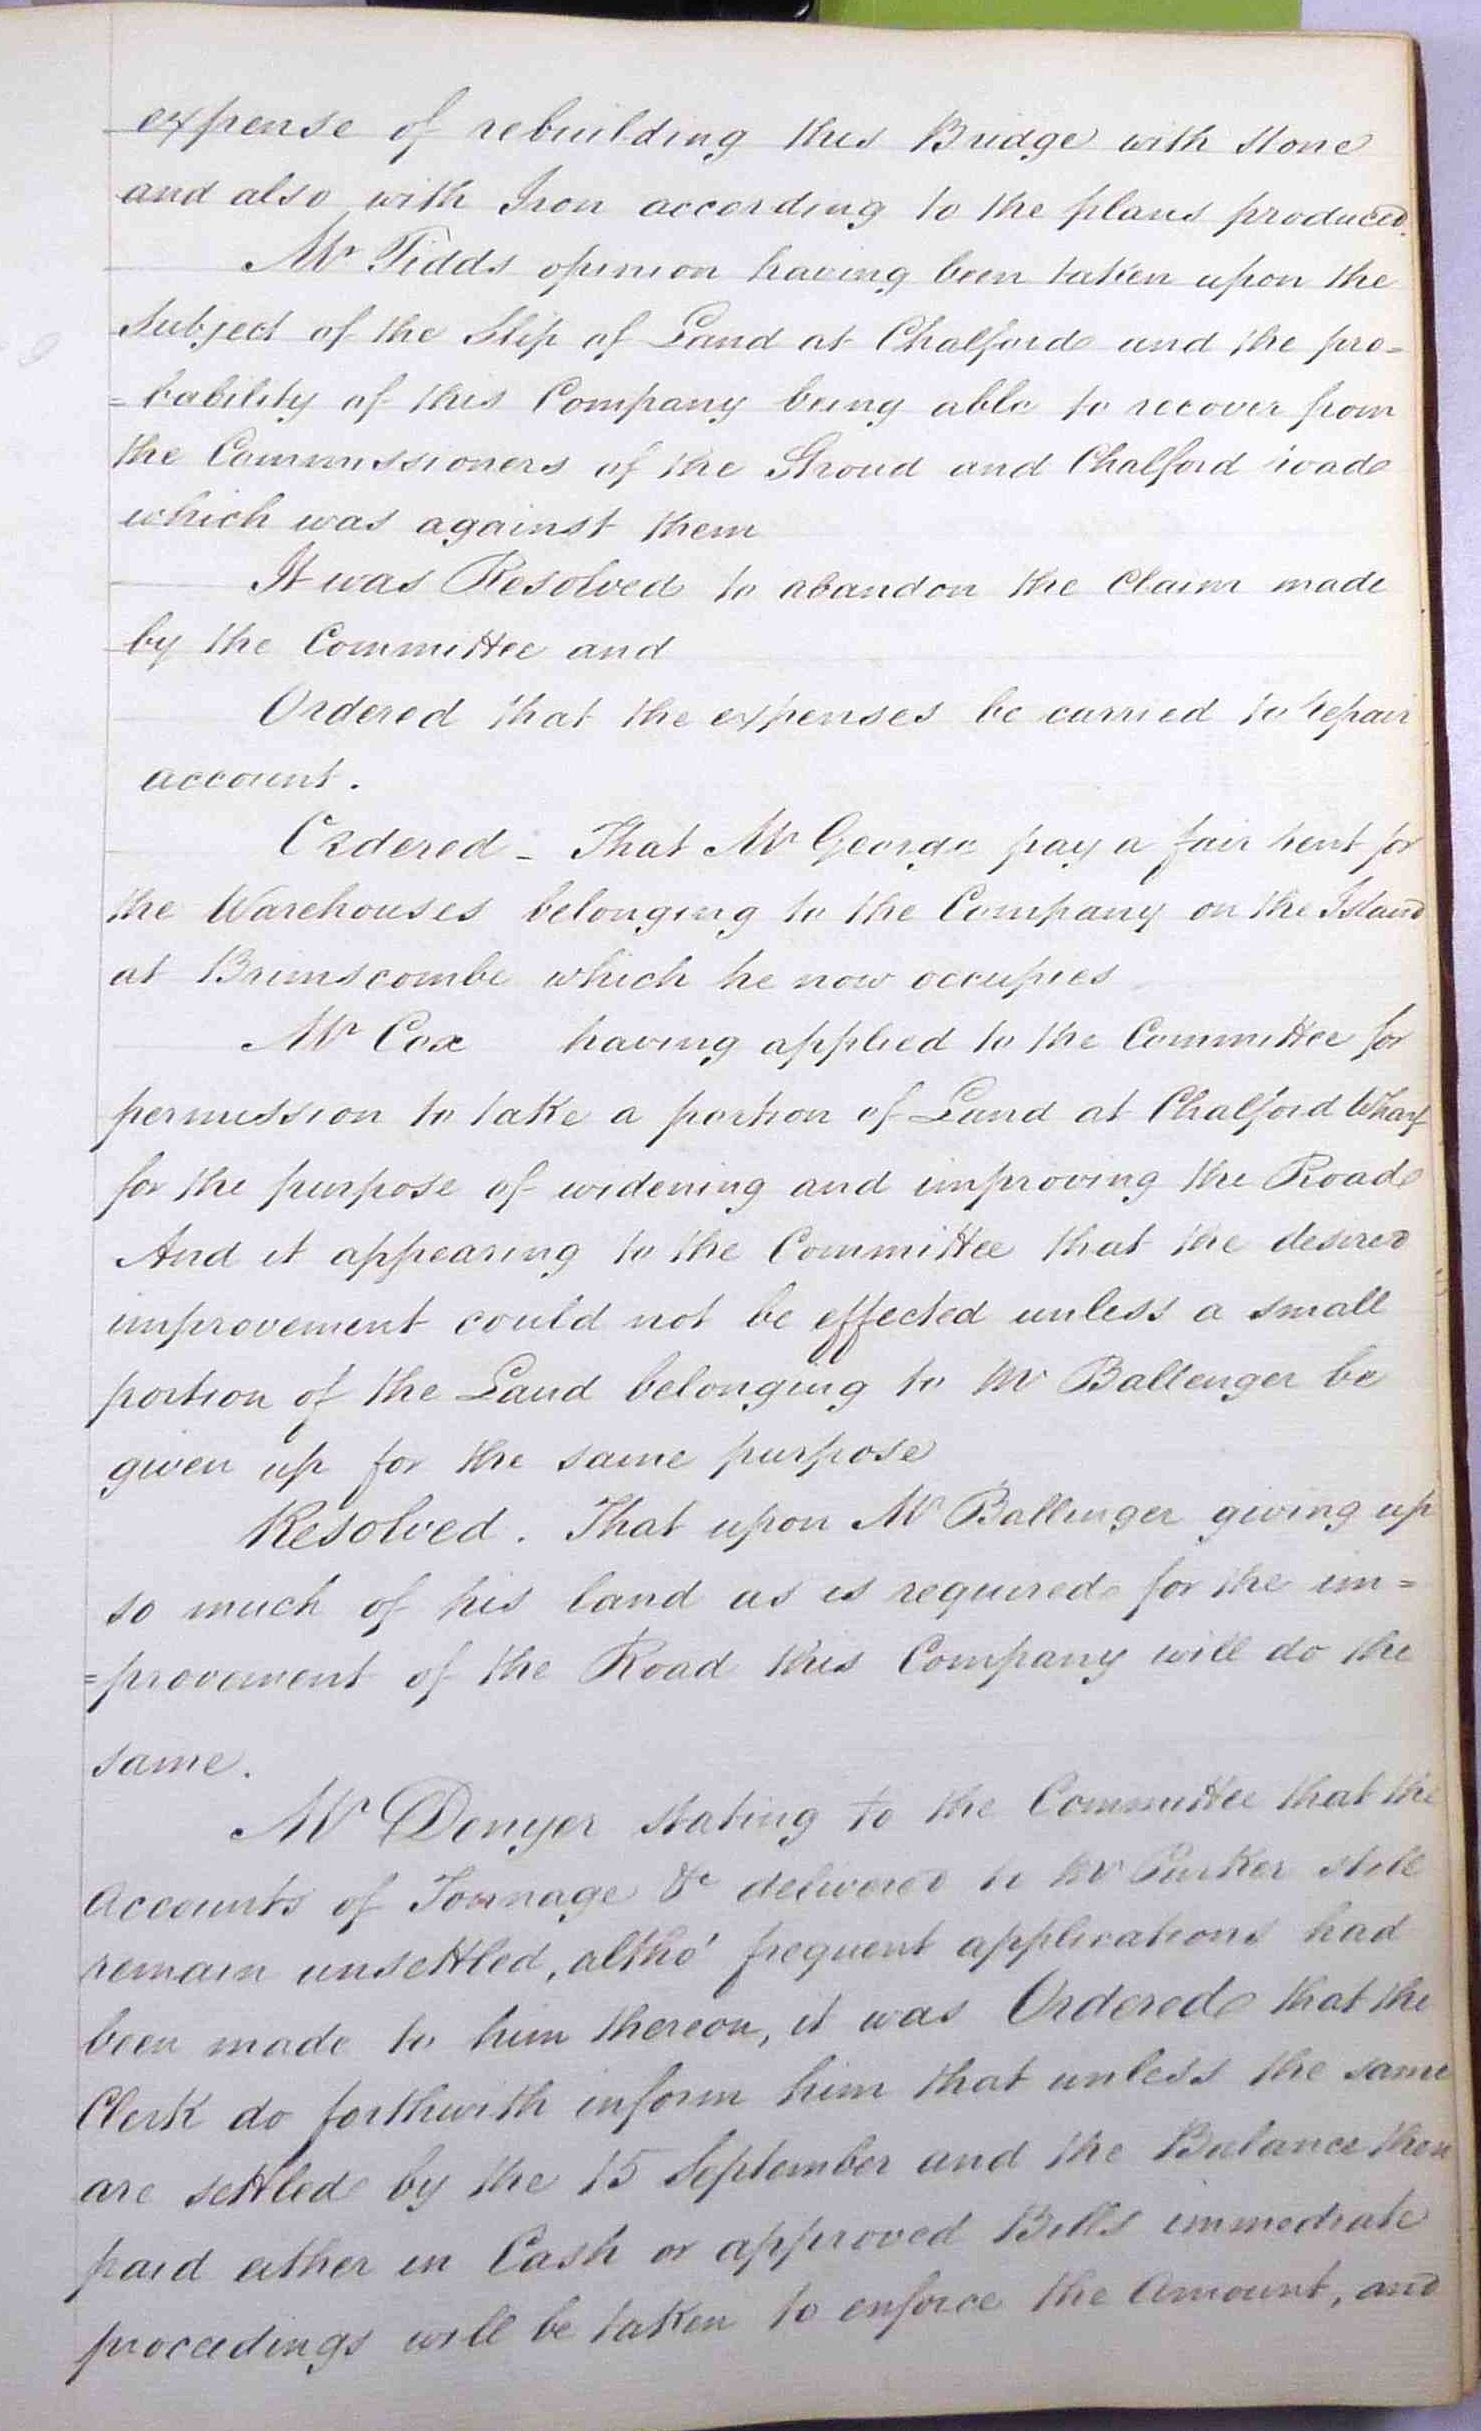 expense of rebuilding this Bridge with stone
and also with Iron according to the plans produced.
Mr Tidds opinion having been taken upon the
subject of the Slip of Land at Chalford and the pro=
=bability of this Company being able to recover from
the Commissioners of the Stroud and Chalford road
which was against them
It was Resolved to abandon the Claim made
by the Committee and
Ordered that the expenses be carried to repair
account.
Ordered - That Mr George pay a fair rent for
the Warehouses belonging to the Company on the Island
at Brimscombe which he now occupies
Mr Cox having applied to the Committee for
permission to take a portion of Land at Chalford Wharf
for the purpose of widening and improving the Road
And it appearing to the Committee that the desired
improvement could not be effected unless a small
portion of the Land belonging to Mr Ballenger be
given up for the same purpose
Resolved. That upon Mr Ballinger giving up
so much of his land as is required for the im=
=provement of the Road this Company will do the
same.
Mr Denyer stating to the Committee that the
Accounts of Tonnage &c delivered to Mr Parker still
remain unsettled, altho' frequent applications had
been made to him thereon, it was Ordered that the
Clerk do forthwith inform him that unless the same
are settled by the 15 September and the Balance then
paid either in Cash or approved Bills immediate
proceedings will be taken to enforce the Amount, and